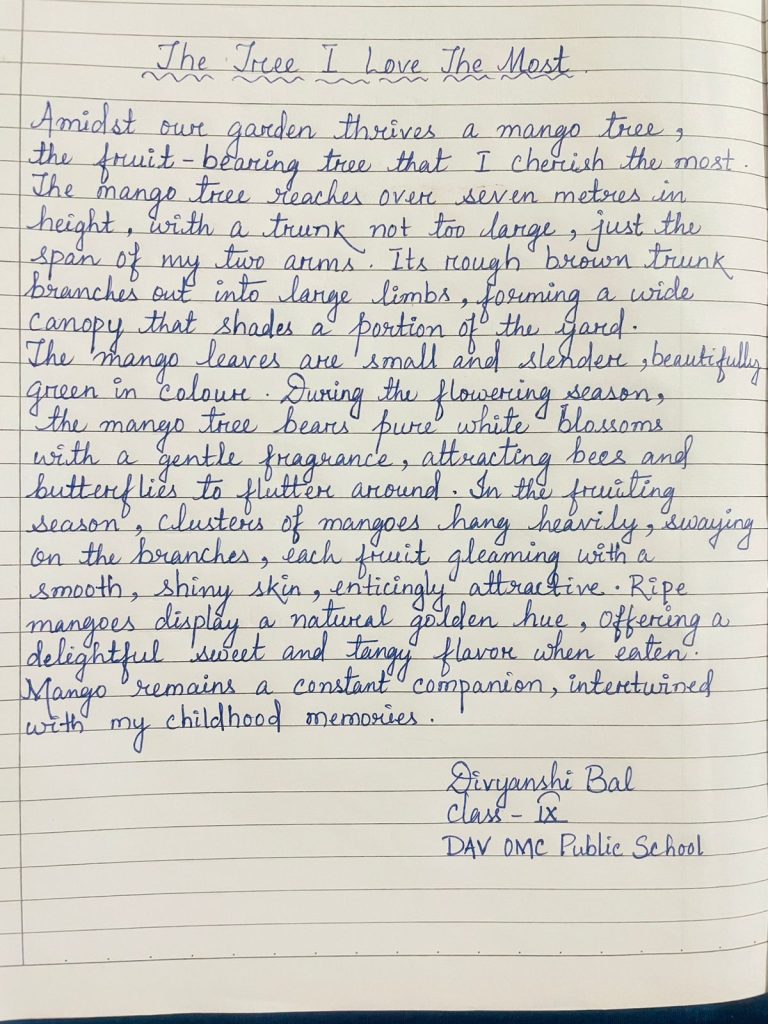 The Tree I Love The Most.
Amidst our garden thrives a mango tree,
the fruit-bearing tree that I cherish the most.
The mango tree reaches over seven metres in
height, with a trunk not too large, just the
span of my two arms. Its rough brown trunk
branches out into large limbs, forming a wide
canopy that shades a portion of the yard.
The mango leaves are small and slender, beautifully
green in colour. During the flowering season,
the mango tree bears pure white blossoms
with a gentle fragrance, attracting bees and
butterflies to flutter around. In the fruiting
season, clusters of mangoes hang heavily, swaying
on the branches, each fruit gleaming with a
smooth, shiny skin, enticingly attractive. Ripe
mangoes display a natural golden hue, offering a
delightful sweet and tangy flavor when eaten.
Mango remains a constant companion, intertwined
with my childhood memories.
Divyanshi Bal
Class - IX
DAV OMC Public School